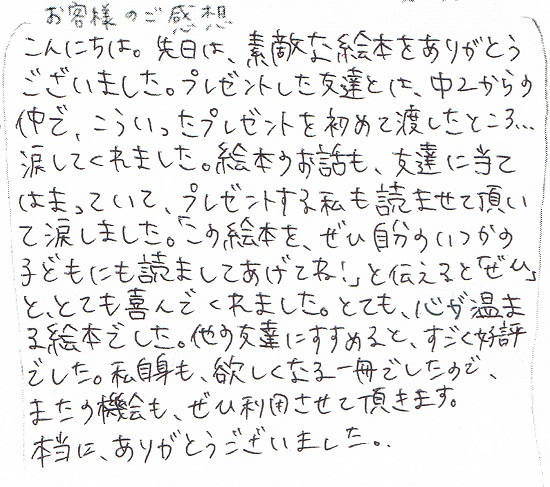 お客様のご感想
こんにちは。先日は、素敵な絵本をありがとう
ございました。プレゼントした友達とは、中2からの
仲で、こういったプレゼントを初めて渡したところ…
涙してくれました。絵本のお話も、友達に当て
はまっていて、プレゼントする私も読ませて頂い
て涙しました。「この絵本を、ぜひ自分のいつかの
子どもにも読ましてあげてね!」と伝えると「ぜひ」
と、とても喜んでくれました。とても、心が温ま
る絵本でした。他の友達にすすめると、すごく好評
でした。私自身も、欲しくなる一冊でしたので、
またの機会も、ぜひ利用させて頂きます。
本当に、ありがとうございました。